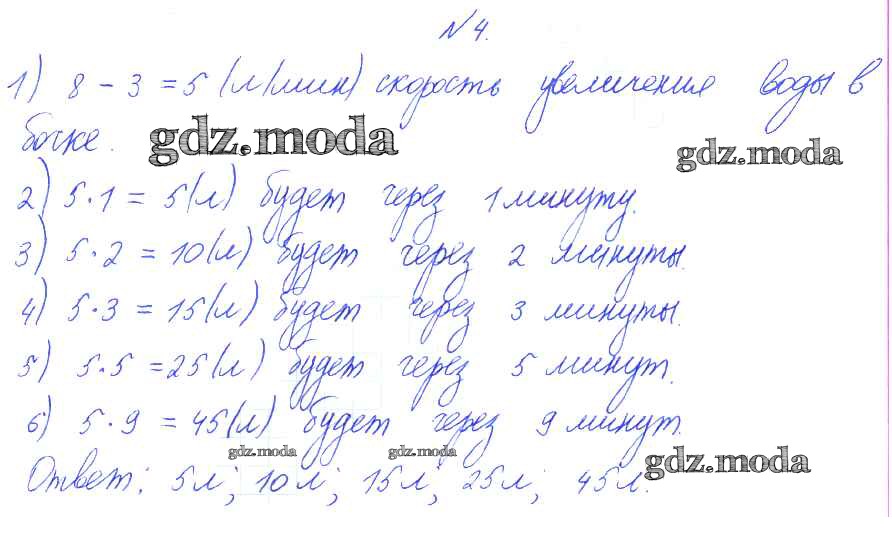 N 4.
1) 8 - 3 = 5 (л/мин) скорость увеличения воды в
бочке. gdz.moda gdz.moda
2) 5·1 = 5(л) будет через 1 минуту.
3) 5·2 = 10(л) будет через 2 минуты.
4) 5·3 = 15(л) будет через 3 минуты.
5) 5·5 = 25(л) будет через 5 минут.
6) 5·9 = 45(л) будет через 9 минут.
gdz.moda gdz.moda gdz.moda
Ответ: 5л; 10л; 15л; 25л; 45л.